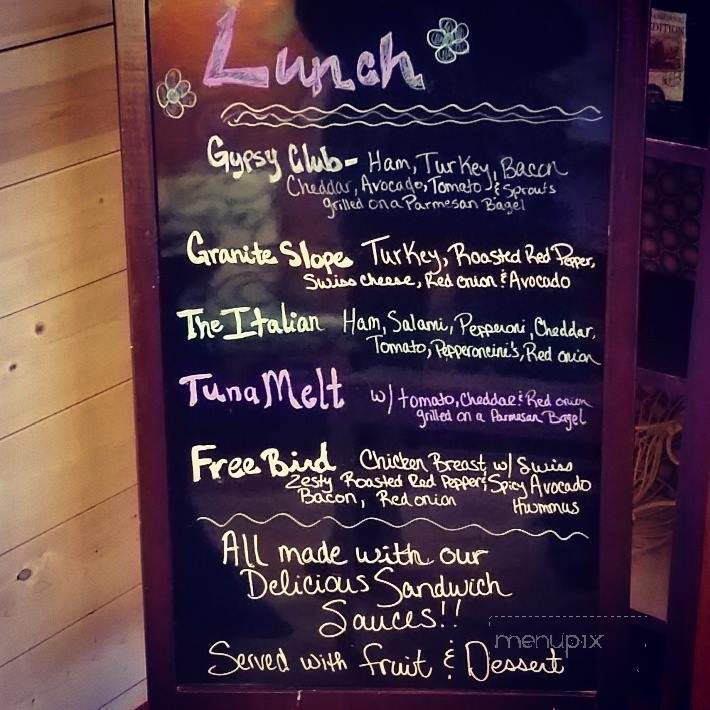 Lunch
EDITION
Gypsy Club - Ham, Turkey, Bacon
Cheddar, Avocado, Tomato & Sprouts
grilled on a Parmesan Bagel
Granite Slope Turkey, Roasted Red Pepper,
Swiss cheese, Red onion & Avocado
The Italian Ham, Salami, Pepperoni, Cheddar,
Tomato, Pepperoncini's, Red onion
Tuna Melt w/ tomato, Cheddar & Red onion
grilled on a Parmesan Bagel
Free Bird Chicken Breast w/ Swiss
Zesty Roasted Red Pepper & Spicy Avocado
Bacon, Red onion Hummus
All made with our
Delicious Sandwich
Sauces!!
menupix
Served with fruit & Dessert